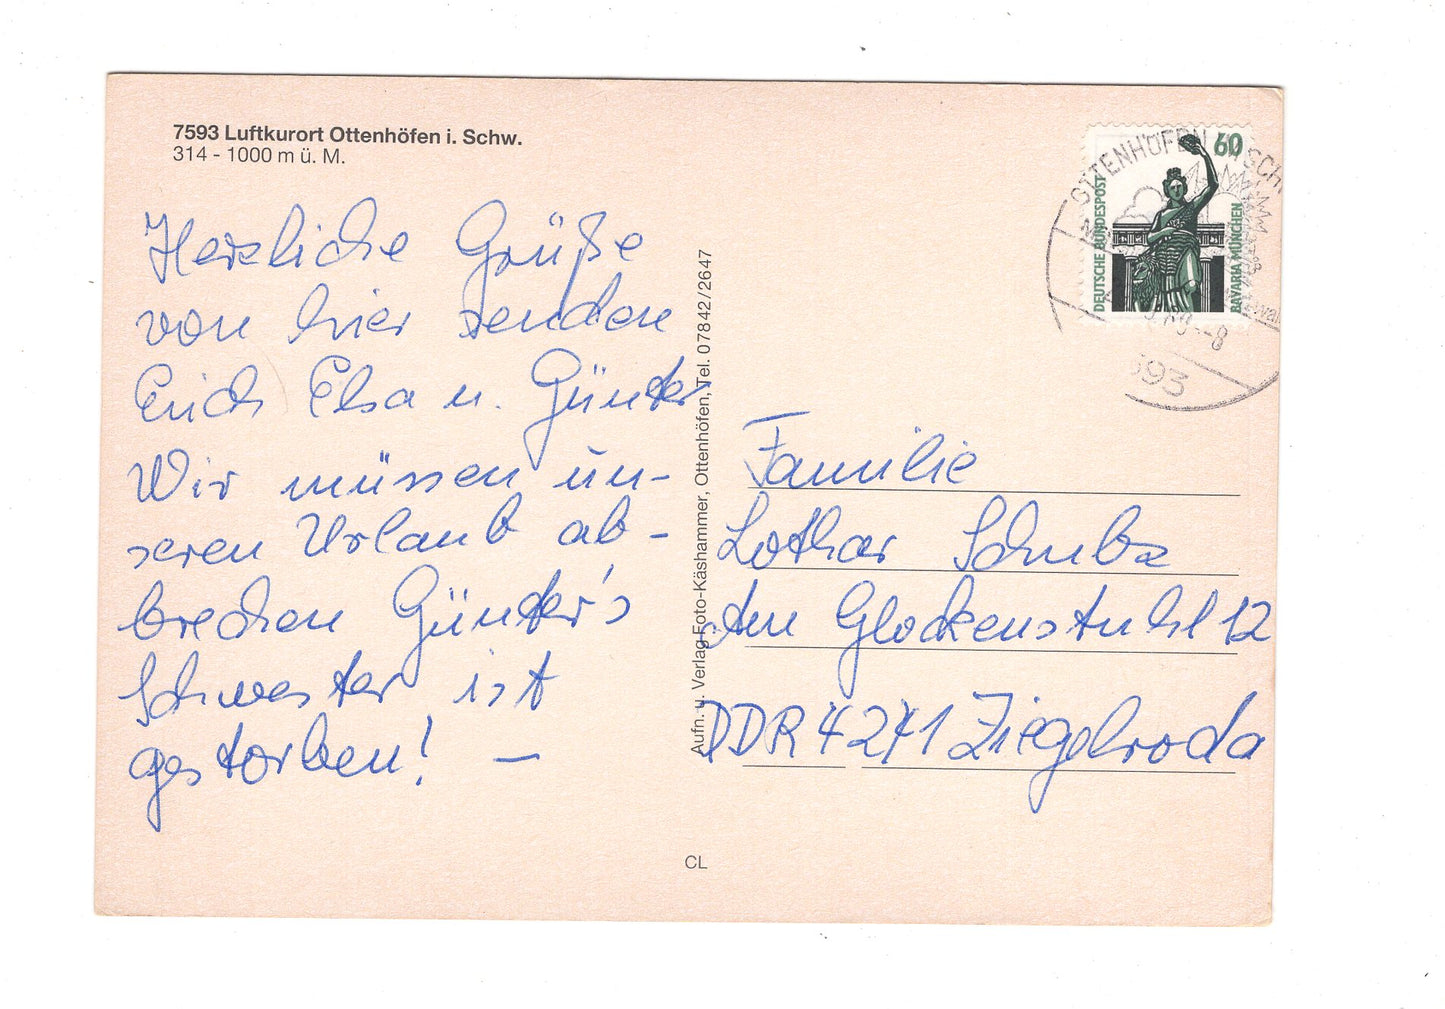 7593 Luftkurort Ottenhöfen i. Schw.
314 - 1000 m ü. M.
Herzliche Grüße
von hier senden
Erich Elsa u. Günter
Wir müssen un-
seren Urlaub ab-
brechen Günter's
Schwester ist
gestorben! –
Aufn. u. Verlag Foto-Käshammer, Ottenhöfen, Tel. 07842/2647
CL
OTTENHÖFEN
SCH
60
DEUTSCHE BUNDESPOST
BAVARIA MÜNCHEN
593
Familie
Lothar Schubz
Am Glockenstuhl 12
DDR 4241 Ziegelroda